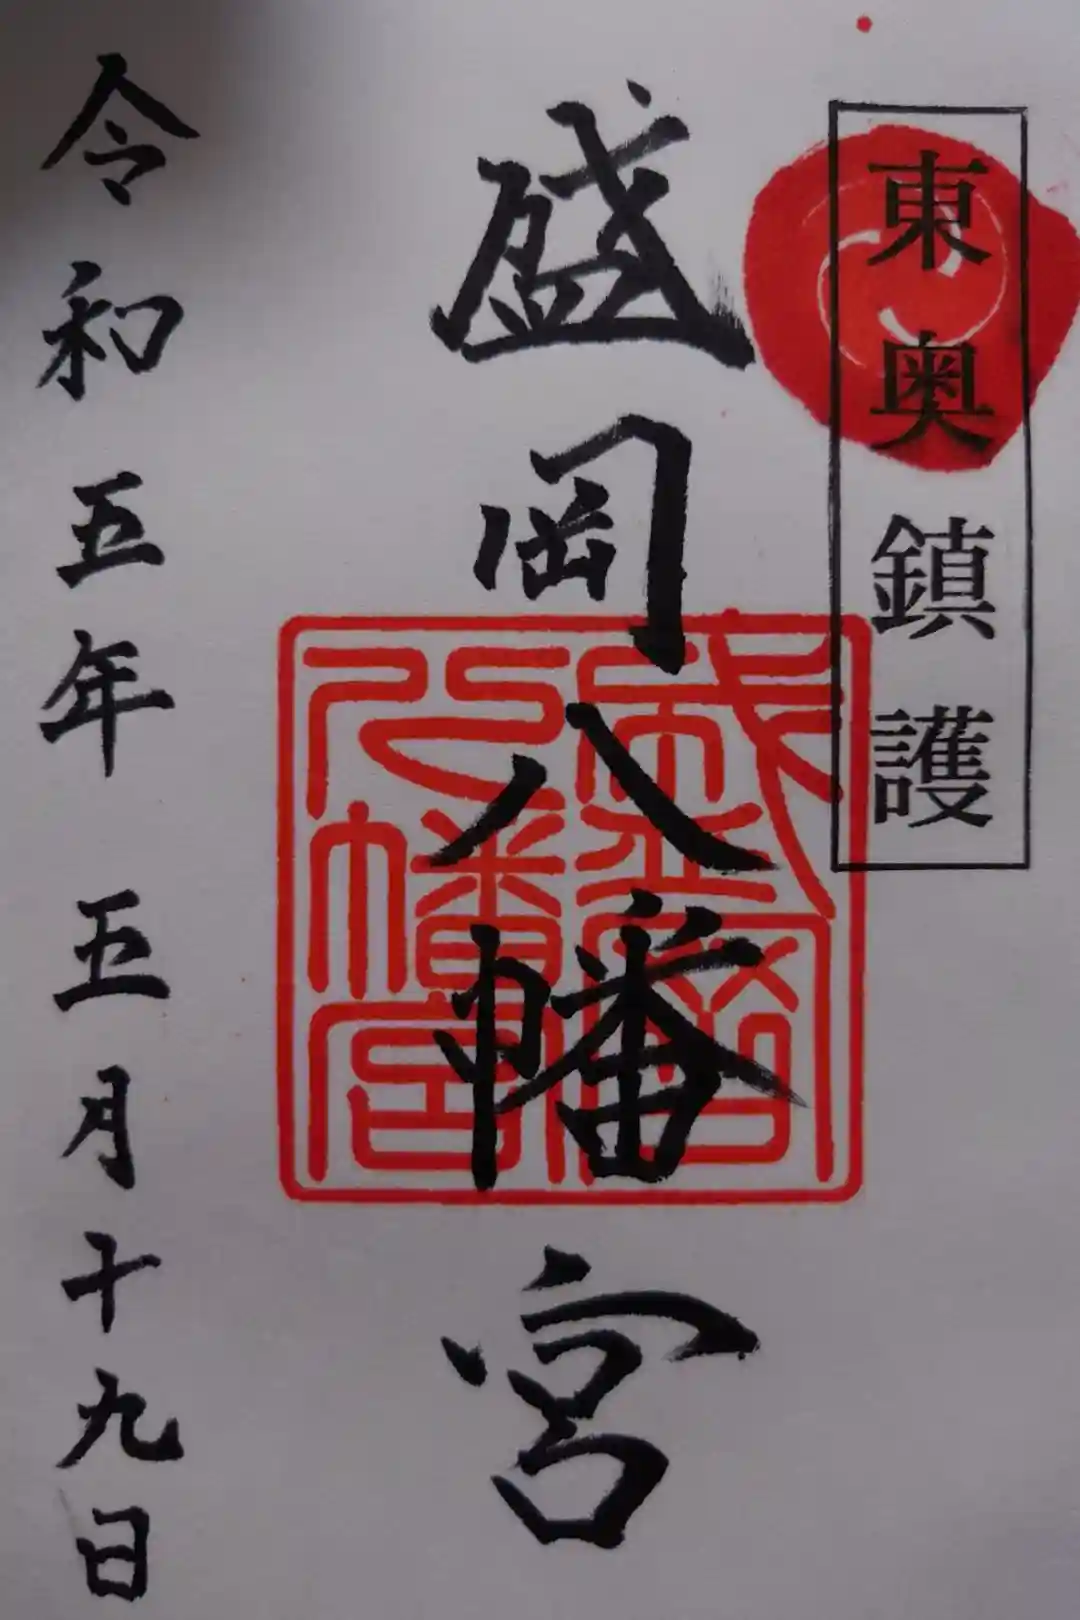 東奥鎮護
盛岡八幡宮
盛岡八幡宮
令和五年 五月十九日